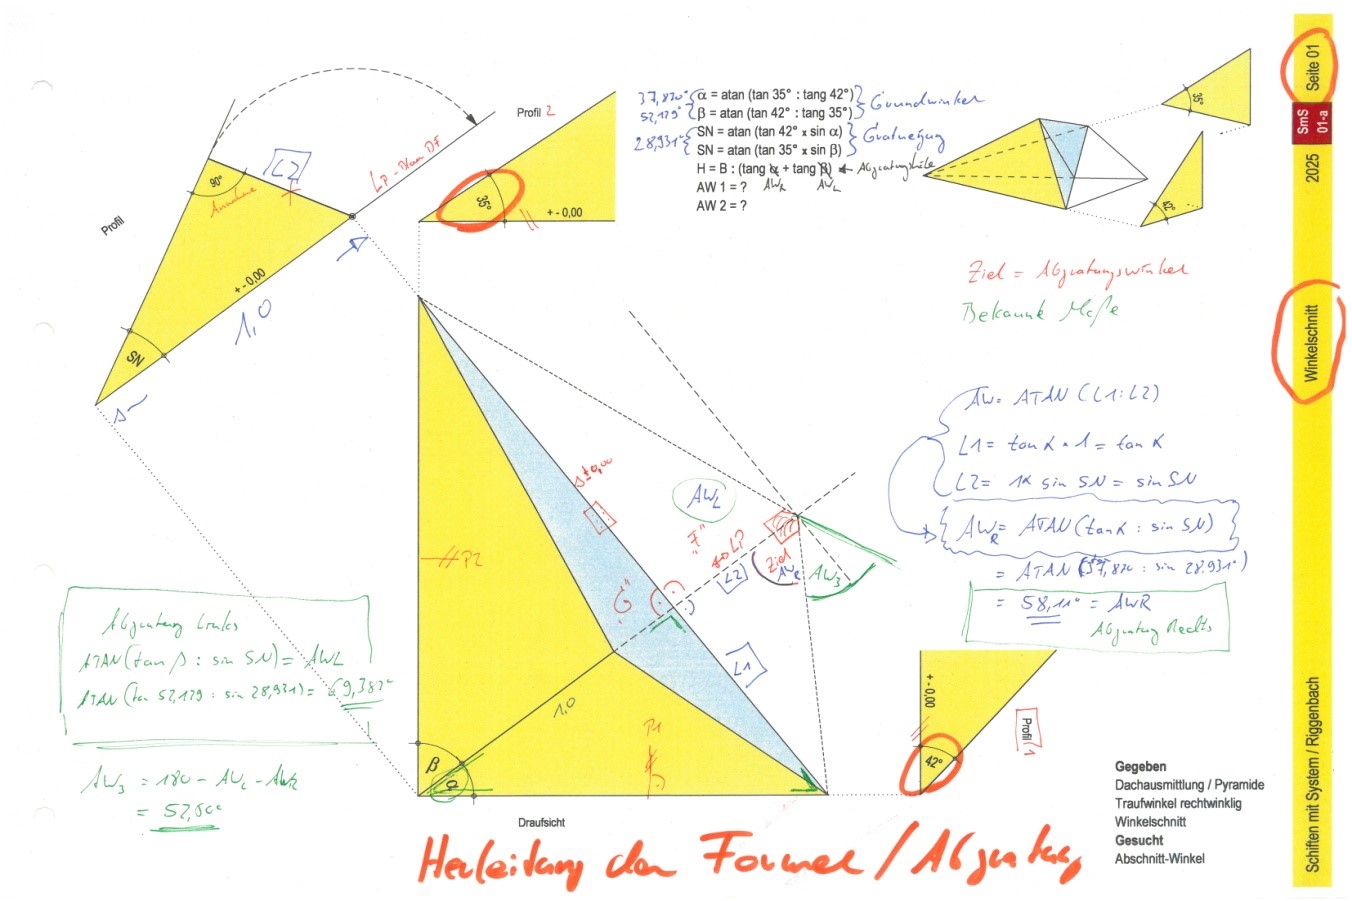 Profil 2
35°
+ - 0,00
37,820° { α = atan (tan 35° : tang 42°) } Grundwinkel
52,179° { β = atan (tan 42° : tang 35°)
28,931° { SN = atan (tan 42° x sin α) } Gratneigung
SN = atan (tan 35° x sin β)
H = B : (tang α + tang β) ← Abgratungshöhe
AWR AWL
AW 1 = ?
AW 2 = ?
35°
42°
Seite 01
SmS
01-a
2025
Winkelschnitt
Schiften mit System / Riggenbach
Profil
90°
Annahme
L2
LP - Plan DF
+ - 0,00
1,0
SN
S
Ziel = Abgratungswinkel
Bekannte Maße
AW = ATAN (L1 : L2)
L1 = tan α • 1 = tan α
L2 = 1 x sin SN = sin SN
AWR = ATAN (tan α : sin SN)
= ATAN (37,820 : sin 28.931°)
= 58,11° = AWR
Abgratung Rechts
S ± 0,00
AWL
"F"
LP
L2
Ziel
AWR
AW3
"G"
L1
P2
1,0
P1
β
α
Draufsicht
Abgratung Links
ATAN (tan β : sin SN) = AWL
ATAN (tan 52,179 : sin 28,931) = 69,387°
AW3 = 180 - AWL - AWR
= 52,50°
+ - 0,00
Profil 1
42°
Gegeben
Dachausmittlung / Pyramide
Traufwinkel rechtwinklig
Winkelschnitt
Gesucht
Abschnitt-Winkel
Herleitung der Formel / Abgratung